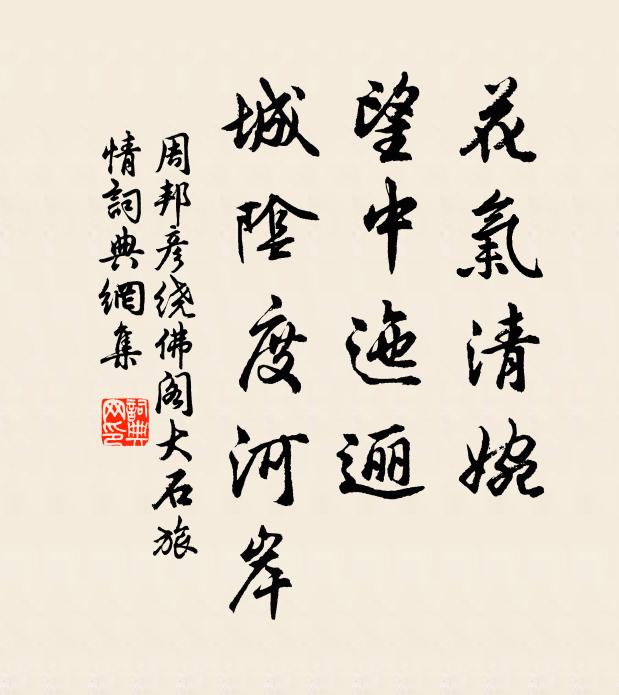 花氣清婉
望中迤逦
城陰度河岸
周邦彦绕佛阁大石旅
情詞典網集
詞典网印